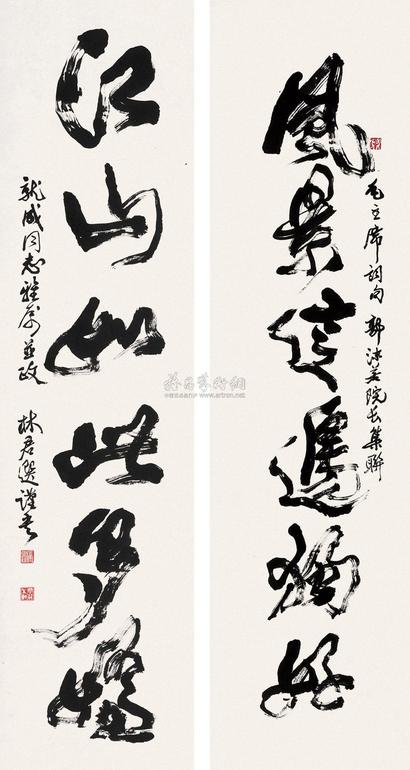 風景這邊獨好
毛主席詞句 郭沫若院長集聯
江山如此多嬌
同志雅屬並政 林君選謹書
雅昌藝術網
www.artron.net